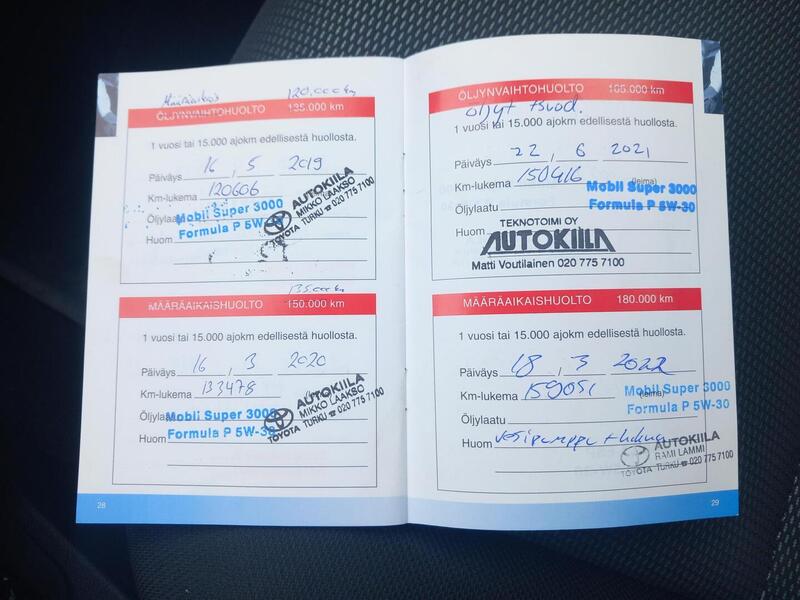 Määräaikais 120.000 km
ÖLJYNVAIHTOHUOLTO 135.000 km
1 vuosi tai 15.000 ajokm edellisestä huollosta.
Päiväys 16 . 5 2019
Km-lukema 120606
Öljylaatu Mobil Super 3000
Formula P 5W-30
Huom
AUTOKIILA
MIKKO LAAKSO
TOYOTA TURKU ☎ 020 775 7100
135.000 km
MÄÄRÄAIKAISHUOLTO 150.000 km
1 vuosi tai 15.000 ajokm edellisestä huollosta.
Päiväys 16 . 3 2020
Km-lukema 133478
Öljylaatu Mobil Super 3000
Formula P 5W-30
Huom
AUTOKIILA
MIKKO LAAKSO
TOYOTA TURKU ☎ 020 775 7100
28
ÖLJYNVAIHTOHUOLTO 165.000 km
öljyt + suod.
1 vuosi tai 15.000 ajokm edellisestä huollosta.
Päiväys 22 / 6 2021
Km-lukema 150416 (leima)
Öljylaatu Mobil Super 3000
Formula P 5W-30
Huom
TEKNOTOIMI OY
AUTOKIILA
Matti Voutilainen 020 775 7100
MÄÄRÄAIKAISHUOLTO 180.000 km
1 vuosi tai 15.000 ajokm edellisestä huollosta.
Päiväys 18 . 3 2022
Km-lukema 159051 (leima)
Mobil Super 3000
Öljylaatu Formula P 5W-30
Huom Vesipumppu + hihna
AUTOKIILA
RAMI LAMMI
TOYOTA TURKU ☎ 020 775 7100
29